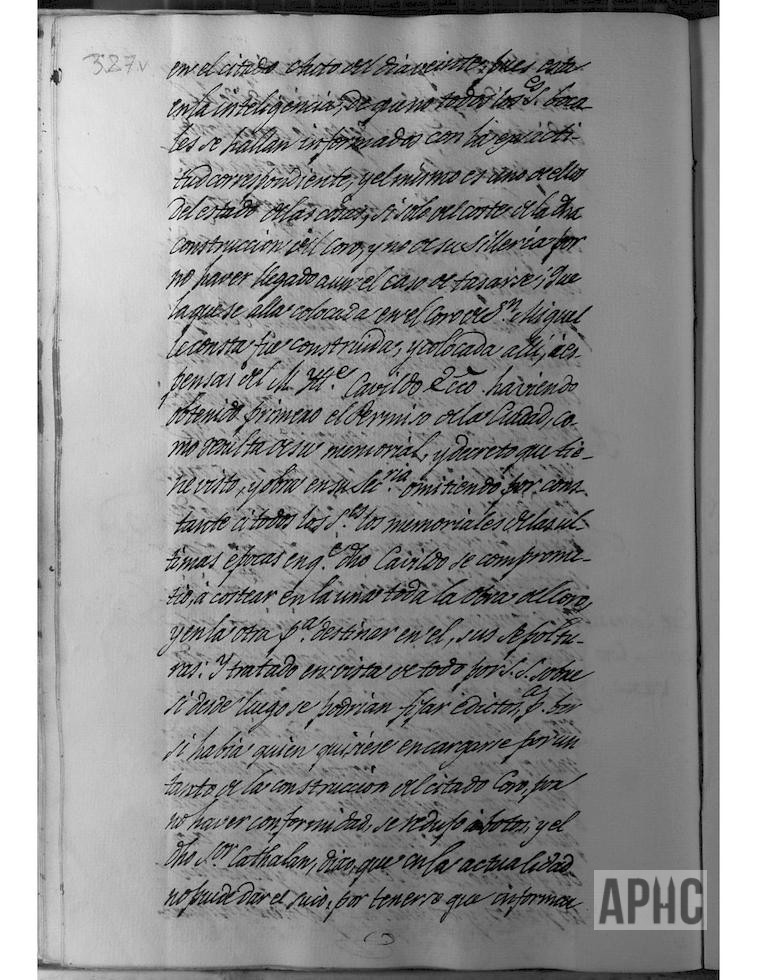 327v
en el citado chato del dia veinte, pues esta
en la inteligencia, de que no todos los S.es Voca-
les se hallan informados con la exacti-
tud correspondiente, y el mismo es uno de ellos
del estado de las cosas, si solo del corte de la dha
construccion del Coro, y no de su Silleria por
no haver llegado aun el caso de tasarse; Que
la que se alla colocada en el Coro de Sn. Miguel
le consta fue construida, y colocada alli, a es-
pensas del M. Ille. Cavildo Ecco. haviendo
obtenido primero el Permiso de la Ciudad, co-
mo resulta de su memorial, y decreto que tie-
ne visto, y obra en su Secria. omitiendo por cons-
tante a todos los S.es los memoriales de las ul-
timas epocas en q.e dho Cavildo se comprome-
tio, a costear en la una toda la Obra del Coro,
y en la otra pa. destinar en el, sus Sepoltu-
ras: Y tratado en vista de todo por S.S. sobre
si desde luego se podrian fijar edictos, pa. ver
si habia quien quisiese encargarse por un
tanto de la construccion del citado Coro, por
no haver conformidad, se redujo a botos, y el
dho Sor. Cathalan, dixo, que en la actualidad
no puede dar el suio, por tenerse que informar
APHC